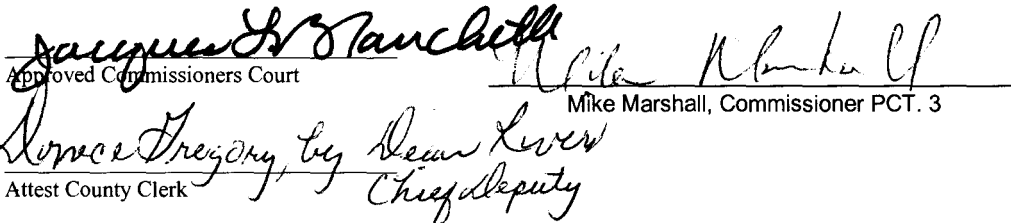 Jacques L. Blanchette
Approved Commissioners Court
Mike Marshall
Mike Marshall, Commissioner PCT. 3
Donece Gregory, by
Attest County Clerk
Chief Deputy